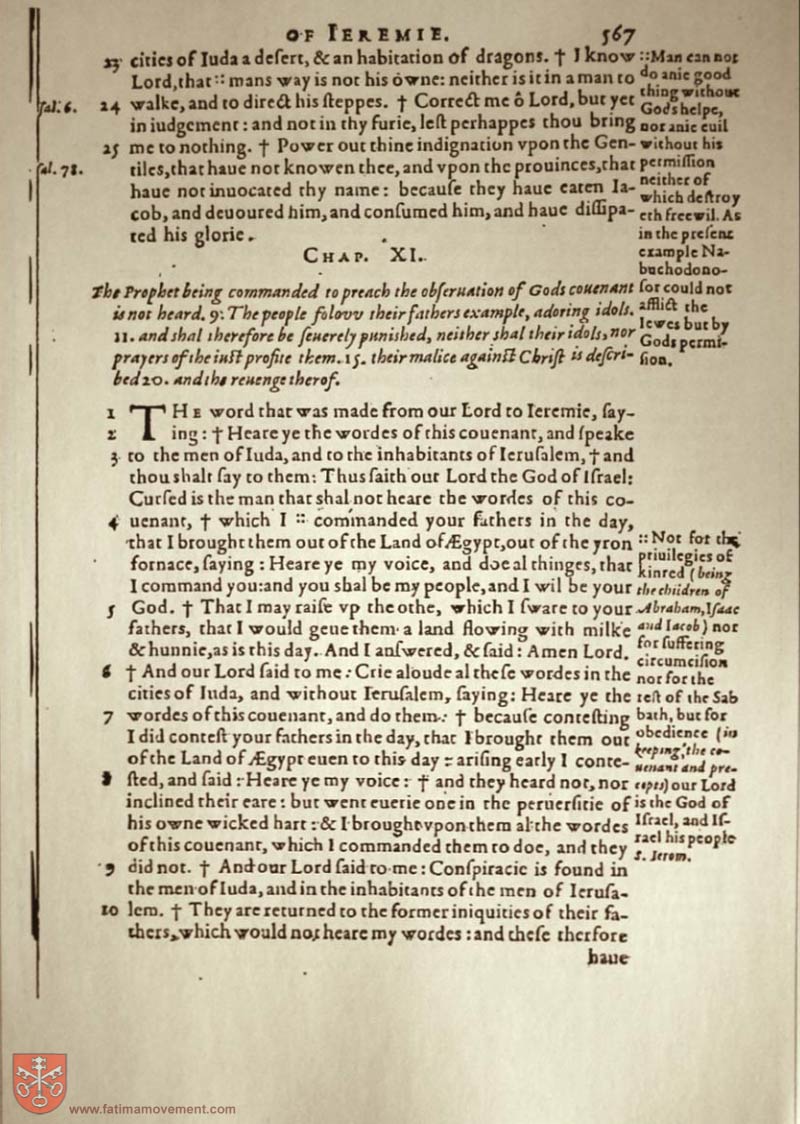 OF IEREMIE. 567
23 cities of Iuda a desert, & an habitation of dragons. † I know
Lord, that :: mans way is not his owne: neither is it in a man to
24 walke, and to direct his steppes. † Correct me ô Lord, but yet
in iudgement: and not in thy furie, lest perhappes thou bring
25 me to nothing. † Power out thine indignation vpon the Gen-
tiles, that haue not knowen thee, and vpon the prouinces, that
haue not inuocated thy name: because they haue eaten Ia-
cob, and deuoured him, and consumed him, and haue dissipa-
ted his glorie.
sal. 6.
sal. 78.
:: Man can not
do anie good
thing without
Gods helpe,
nor anie euil
without his
permission
neither of
which destroy
eth freewil. As
in the present
example Na-
buchodono-
sor could not
afflict the
Iewes but by
Gods permi-
sion.
CHAP. XI.
The Prophet being commanded to preach the obseruation of Gods couenant
is not heard. 9. The people folovv their fathers example, adoring idols.
11. and shal therefore be seuerely punished, neither shal their idols, nor
prayers of the iust profite them. 15. their malice against Christ is descri-
bed 20. and the reuenge therof.
1 THE word that was made from our Lord to Ieremie, say-
2 ing: † Heare ye the wordes of this couenant, and speake
3 to the men of Iuda, and to the inhabitants of Ierusalem, † and
thou shalt say to them: Thus saith our Lord the God of Israel:
Cursed is the man that shal not heare the wordes of this co-
4 uenant, † which I :: commanded your fathers in the day,
that I brought them out of the Land of Ægypt, out of the yron
fornace, saying: Heare ye my voice, and doe al thinges, that
I command you: and you shal be my people, and I wil be your
5 God. † That I may raise vp the othe, which I sware to your
fathers, that I would geue them a land flowing with milke
& hunnie, as is this day. And I answered, & said: Amen Lord.
6 † And our Lord said to me: Crie aloude al these wordes in the
cities of Iuda, and without Ierusalem, saying: Heare ye the
7 wordes of this couenant, and do them: † because contesting
I did contest your fathers in the day, that I brought them out
of the Land of Ægypt euen to this day: arising early I conte-
8 sted, and said: Heare ye my voice: † and they heard not, nor
inclined their eare: but went euerie one in the peruersitie of
his owne wicked hart: & I brought vpon them al the wordes
of this couenant, which I commanded them to doe, and they
9 did not. † And our Lord said to me: Conspiracie is found in
the men of Iuda, and in the inhabitants of the men of Ierusa-
10 lem. † They are returned to the former iniquities of their fa-
thers, which would not heare my wordes: and these therfore
haue
:: Not for the
priuilegies of
kinred (being
the children of
Abraham, Isaac
and Iacob) nor
for suffering
circumcision
nor for the
rest of the Sab
bath, but for
obedience (in
keeping the co-
uenant and pre-
cepts) our Lord
is the God of
Israel, and Is-
rael his people
S. Ierom.
www.fatimamovement.com